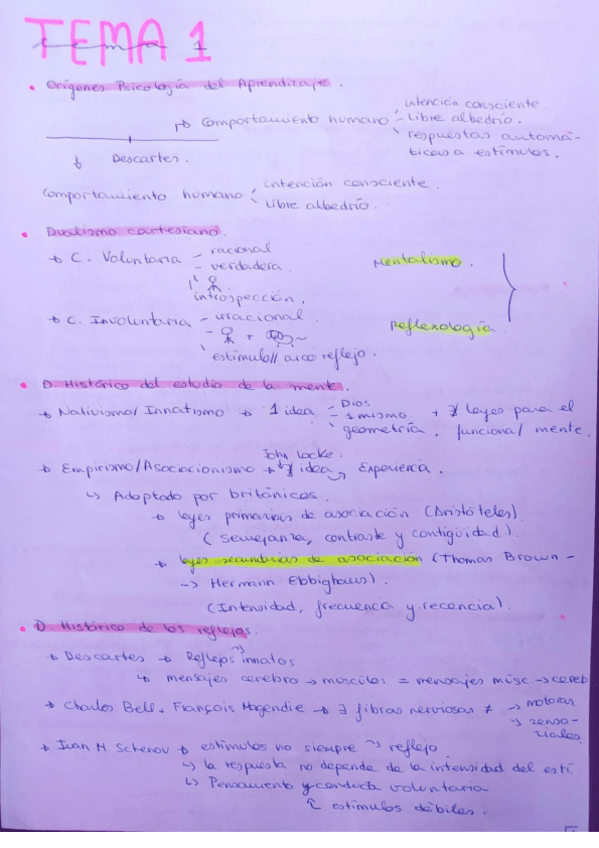 TEMA 1
tema 1
• Orígenes Psicología del Aprendizaje.
↱ Comportamiento humano – intención consciente
– Libre albedrío.
respuestas automá-
ticas a estímulos.
↓ Descartes.
Comportamiento humano intención consciente.
Libre albedrío.
• Dualismo cartesiano.
→ C. Voluntaria – racional
– verdadera.
introspección.
Mentalismo.
→ C. Involuntaria – irracional.
– +
estímulo// arco reflejo.
Reflexología.
• D. Histórico del estudio de la mente.
→ Nativismo/Innatismo → 1 idea – Dios
– 1 mismo.
geometría.
+ ∄ leyes para el
funciona/ mente.
John Locke.
→ Empirismo/Asociacionismo → ∄ idea → Experiencia.
↳ Adoptado por británicos.
→ leyes primarias de asociación (Aristóteles).
(semejanza, contraste y contigüidad).
→ leyes secundarias de asociación (Thomas Brown –
–> Hermann Ebbighaus).
(Intensidad, frecuencia y recencia).
• D. Histórico de los reflejos.
→ Descartes → Reflejos innatos
↳ mensajes cerebro → musculos = mensajes músc. → cereb
→ Charles Bell + François Magendie → ∃ fibras nerviosas ≠ → motoras
→ senso-
riales.
→ Ivan M Schenov → estímulos no siempre ⤳ reflejo.
↳ la respuesta no depende de la intensidad del estí.
↳ Pensamiento y conducta voluntaria
↸ estímulos débiles.